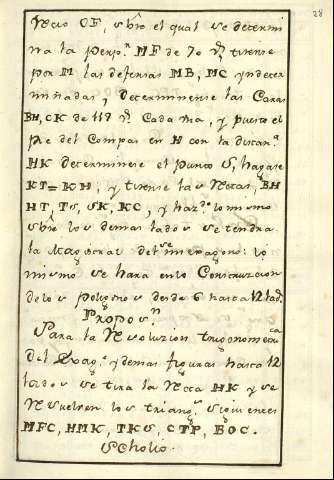 28
Recio OF, sbre el qual se determi
na la perp.r MF de 70 v.s tirense
por M las defensas MB, MC yndeter
minadas, determinense las Caras
BH, CK de 118 v.s Cada una, y puesto el
pie del Compas en H con la distan.a
HK determinese el punto S, hagase
KT=KH; y tirense las Rectas, BH
HT, TS, SK, KC, y haz.do lo mismo
sbre los demas lados se tendra
la Magistral del exagono: lo
mismo se hara en la Construzion
de los Poligonos desde 6 hasta 12 lad.s
Propos.n
Para la Resoluzion trigonometrica
del Exag.o y demas figuras hasta 12
lados se tira la Recta HK y se
Resuelven los triang.s siguientes
MFC, HMK, TKS, CTP, BOC.
Scholio.